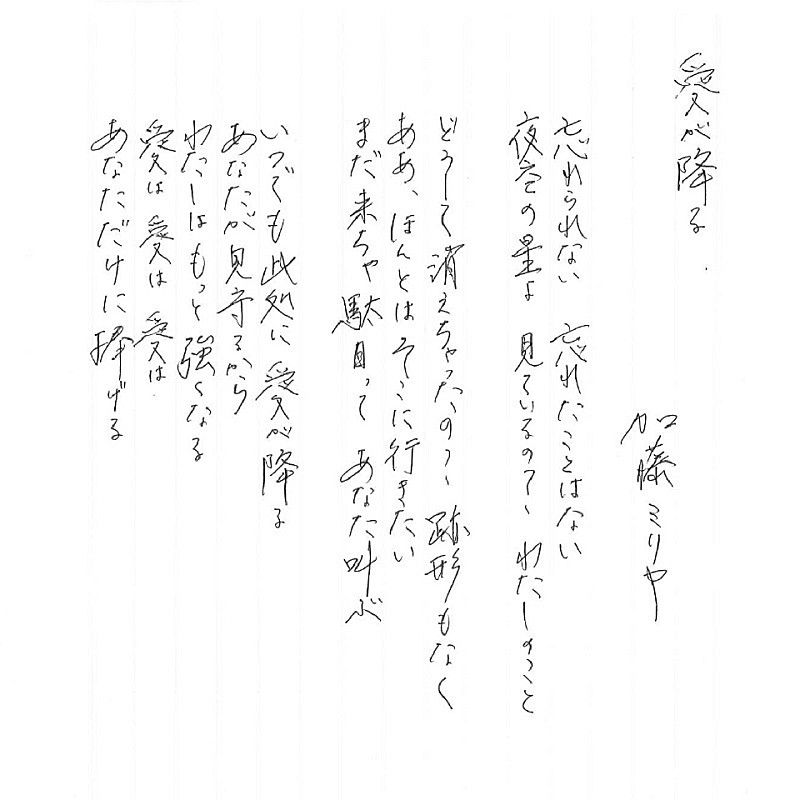 愛が降る
加藤ミリヤ
忘れられない 忘れたことはない
夜空の星よ 見ているの？ わたしのこと
どうして消えちゃったの？ 跡形もなく
ああ、ほんとはそこに行きたい
まだ来ちゃ駄目って あなた叫ぶ
いつでも此処に 愛が降る
あなたが見守るから
わたしはもっと強くなる
愛は 愛は 愛は
あなただけに捧げる